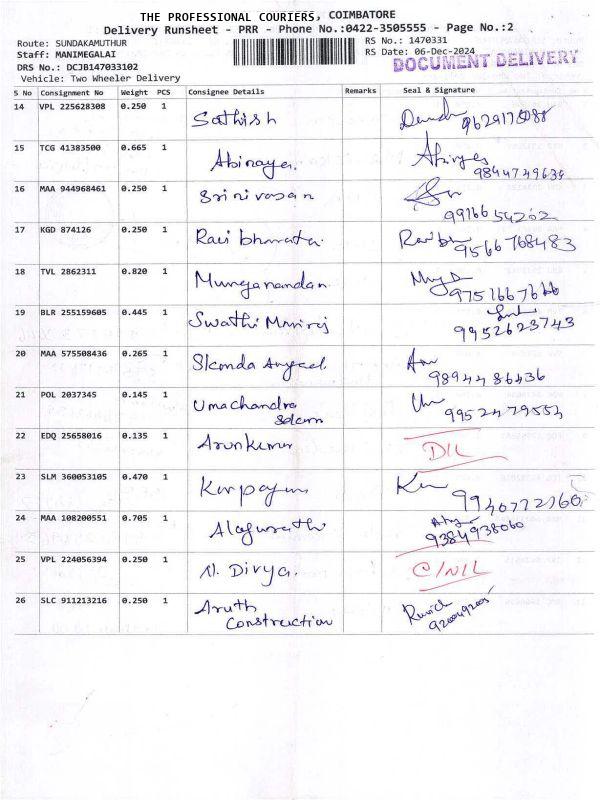 THE PROFESSIONAL COURIERS, COIMBATORE
Delivery Runsheet - PRR - Phone No.:0422-3505555 - Page No.:2
Route: SUNDAKAMUTHUR
Staff: MANIMEGALAI
DRS No.: DCJB147033102
Vehicle: Two Wheeler Delivery
RS No.: 1470331
RS Date: 06-Dec-2024
DOCUMENT DELIVERY
S No Consignment No Weight PCS Consignee Details Remarks Seal & Signature
14 VPL 225628308 0.250 1 Sathish
15 TCG 41383500 0.665 1 Abinaya.
16 MAA 944968461 0.250 1 Srinivasan 9916654202
17 KGD 874126 0.250 1 Ravi bharata. 9566768483
18 TVL 2862311 0.820 1 Muruganandan 9751667666
19 BLR 255159605 0.445 1 Swathi 9952623743
20 MAA 575508436 0.265 1 Skanda 9894486436
21 POL 2037345 0.145 1 Umachandra 9952479554
22 EDQ 25658016 0.135 1 Arunkumar D/L
23 SLM 360053105 0.470 1 Karpagam
24 MAA 108200551 0.705 1 9384938060
25 VPL 224056394 0.250 1 N. Divya. C/N/L
26 SLC 911213216 0.250 1 Aruth
Construction